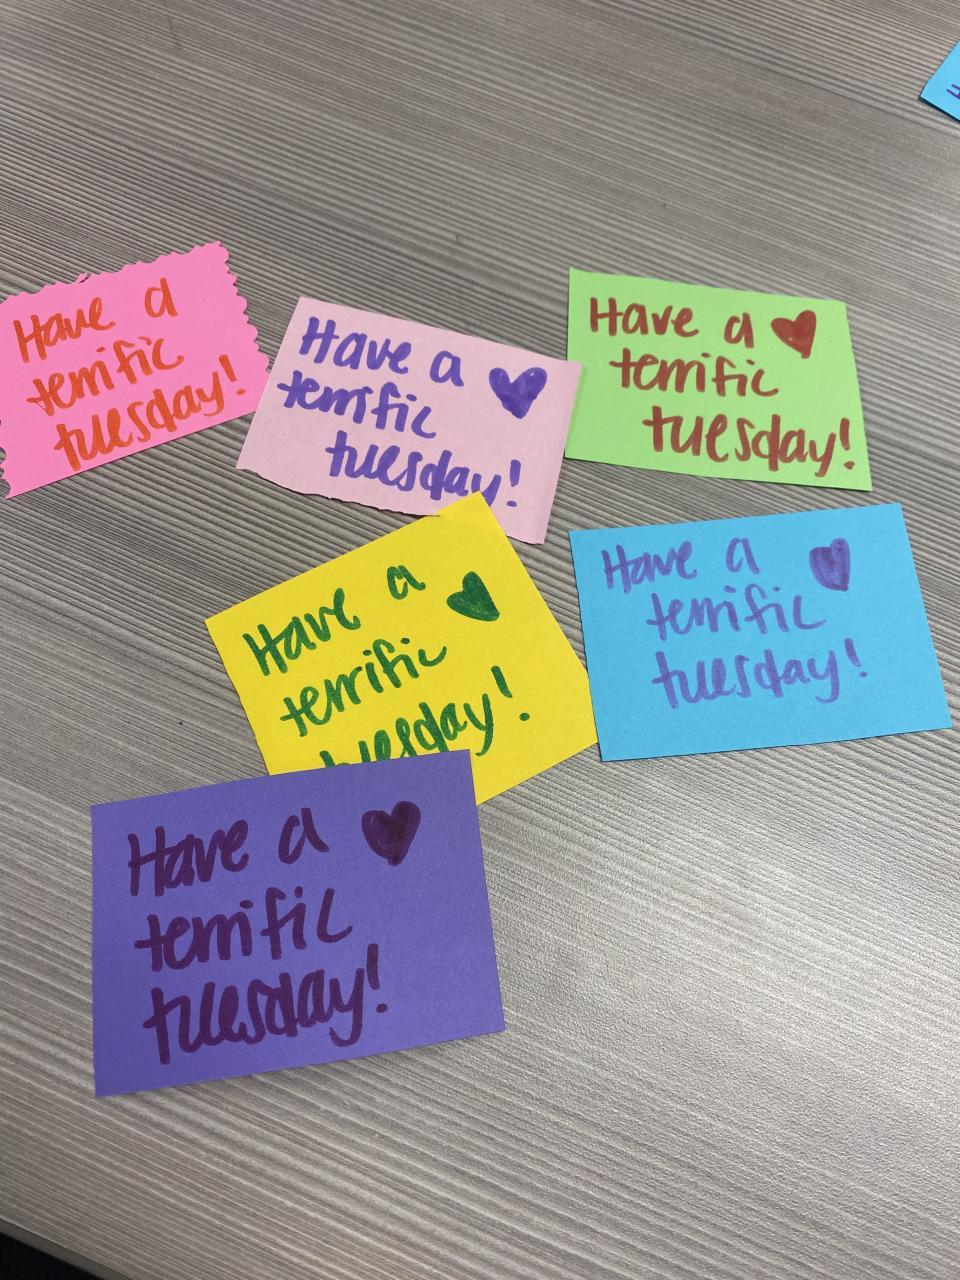 Have a
terrific
tuesday!
Have a
terrific
tuesday!
Have a
terrific
tuesday!
Have a
terrific
tuesday!
Have a
terrific
tuesday!
Have a
terrific
tuesday!